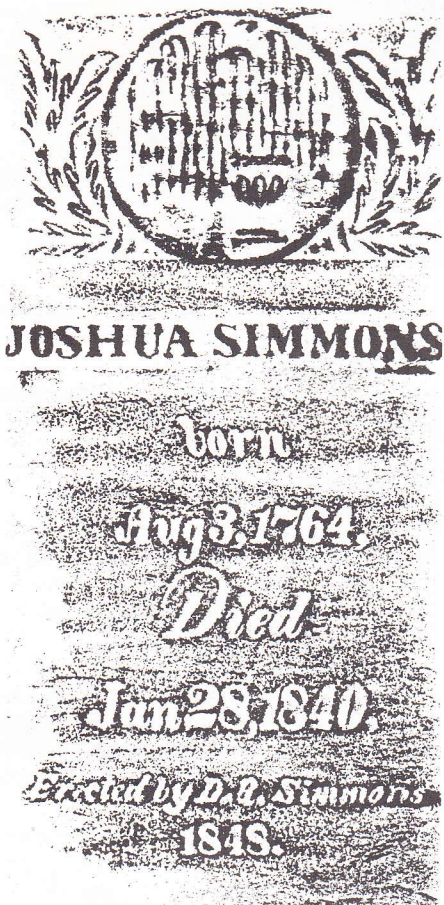 JOSHUA SIMMONS
born
Aug 3, 1764.
Died
Jan 28, 1840.
Erected by D. A. Simmons
1848.